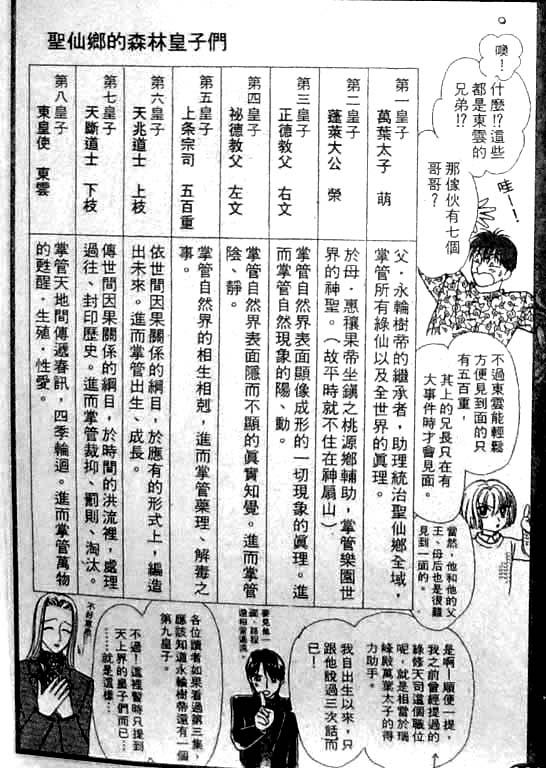 聖仙鄉的森林皇子們
第一皇子
萬葉太子 萌
父·永輪樹帝的繼承者，助理統治聖仙鄉全域，
掌管所有綠仙以及全世界的真理。
第二皇子
蓬萊大公 榮
於母·惠穰果帝坐鎮之桃源鄉輔助，掌管樂園世
界的神聖。（故平時就不住在神扇山）
第三皇子
正德教父 右文
掌管自然界表面顯像成形的一切現象的真理。進
而掌管自然現象的陽、動。
第四皇子
祕德教父 左文
掌管自然界表面隱而不顯的真實知覺。進而掌管
陰、靜。
第五皇子
上条宗司 五百重
掌管自然界的相生相剋，進而掌管藥理、解毒之
事。
第六皇子
天兆道士 上枝
依世間因果關係的綱目，於應有的形式上，編造
出未來。進而掌管出生、成長。
第七皇子
天斷道士 下枝
傳世間因果關係的綱目，於時間的洪流裡，處理
過往、封印歷史。進而掌管裁抑、罰則、淘汰。
第八皇子
東皇使 東雲
掌管天地間傳遞春訊，四季輪迴。進而掌管萬物
的甦醒·生殖·性愛。
噢！
什麼!?這些
都是東雲的
兄弟!?
哇—!!
那傢伙有七個
哥哥？
不過東雲能輕鬆
方便見到面的只
有五百重，
其上的兄長只在有
大事件時才會見面。
當然，他和他的父
王、母后也是很難
見到一面的。
是啊—順便一提，
我之前曾經提過的
綠修天司這個職位
呢，就是相當於瑞
峰殿萬葉太子的得
力助手。
我自出生以來，只
跟他說過三次話而
已！
要見他一
面，路程
還相當遙遠。
各位讀者如果看過第三集，
應該知道永輪樹帝還有一個
第九皇子。
不過！這裡暫時只提到
天上界的皇子們而已…
……就是這樣……
不好意思！